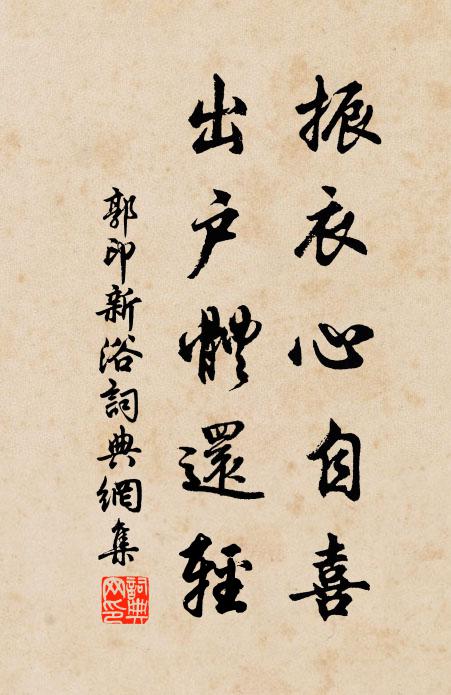 振衣心自喜
出户體還輕
郭印新浴詞典網集
詞典